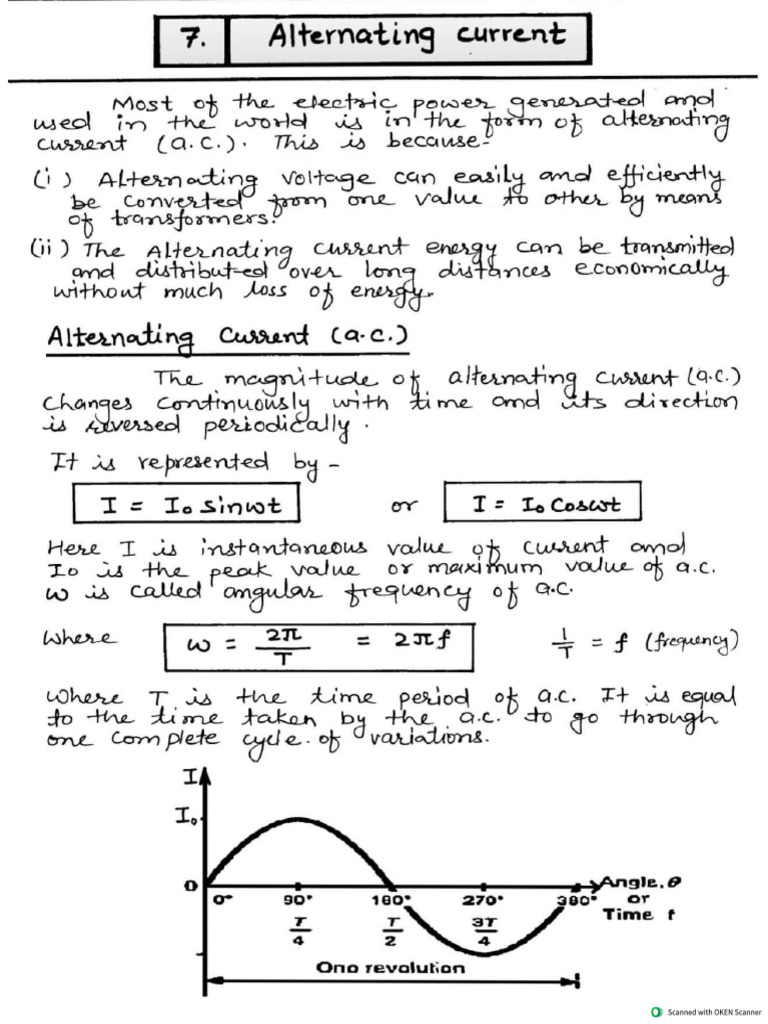 7. Alternating current
Most of the electric power generated and
used in the world is in the form of alternating
current (a.c.). This is because-
(i) Alternating voltage can easily and efficiently
be converted from one value to other by means
of transformers.
(ii) The Alternating current energy can be transmitted
and distributed over long distances economically
without much loss of energy.
Alternating Current (a.c.)
The magnitude of alternating current (a.c.)
changes continuously with time and its direction
is reversed periodically.
It is represented by -
I = I₀ sinωt or I = I₀ cosωt
Here I is instantaneous value of current and
I₀ is the peak value or maximum value of a.c.
ω is called angular frequency of a.c.
Where ω = 2π/T = 2πf 1/T = f (frequency)
Where T is the time period of a.c. It is equal
to the time taken by the a.c. to go through
one complete cycle of variations.
I
I₀
0 Angle, θ
0° 90° 180° 270° 360° or
T/4 T/2 3T/4 Time t
One revolution
Scanned with OKEN Scanner